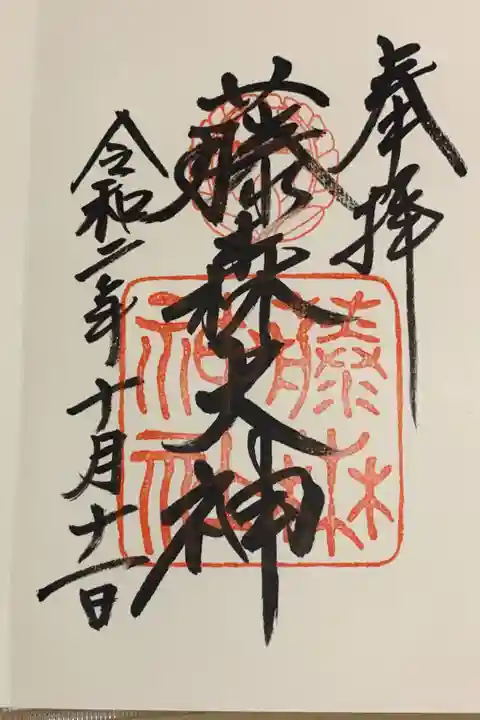 奉拝
藤森大神
令和二年十月十一日
藤森
神社